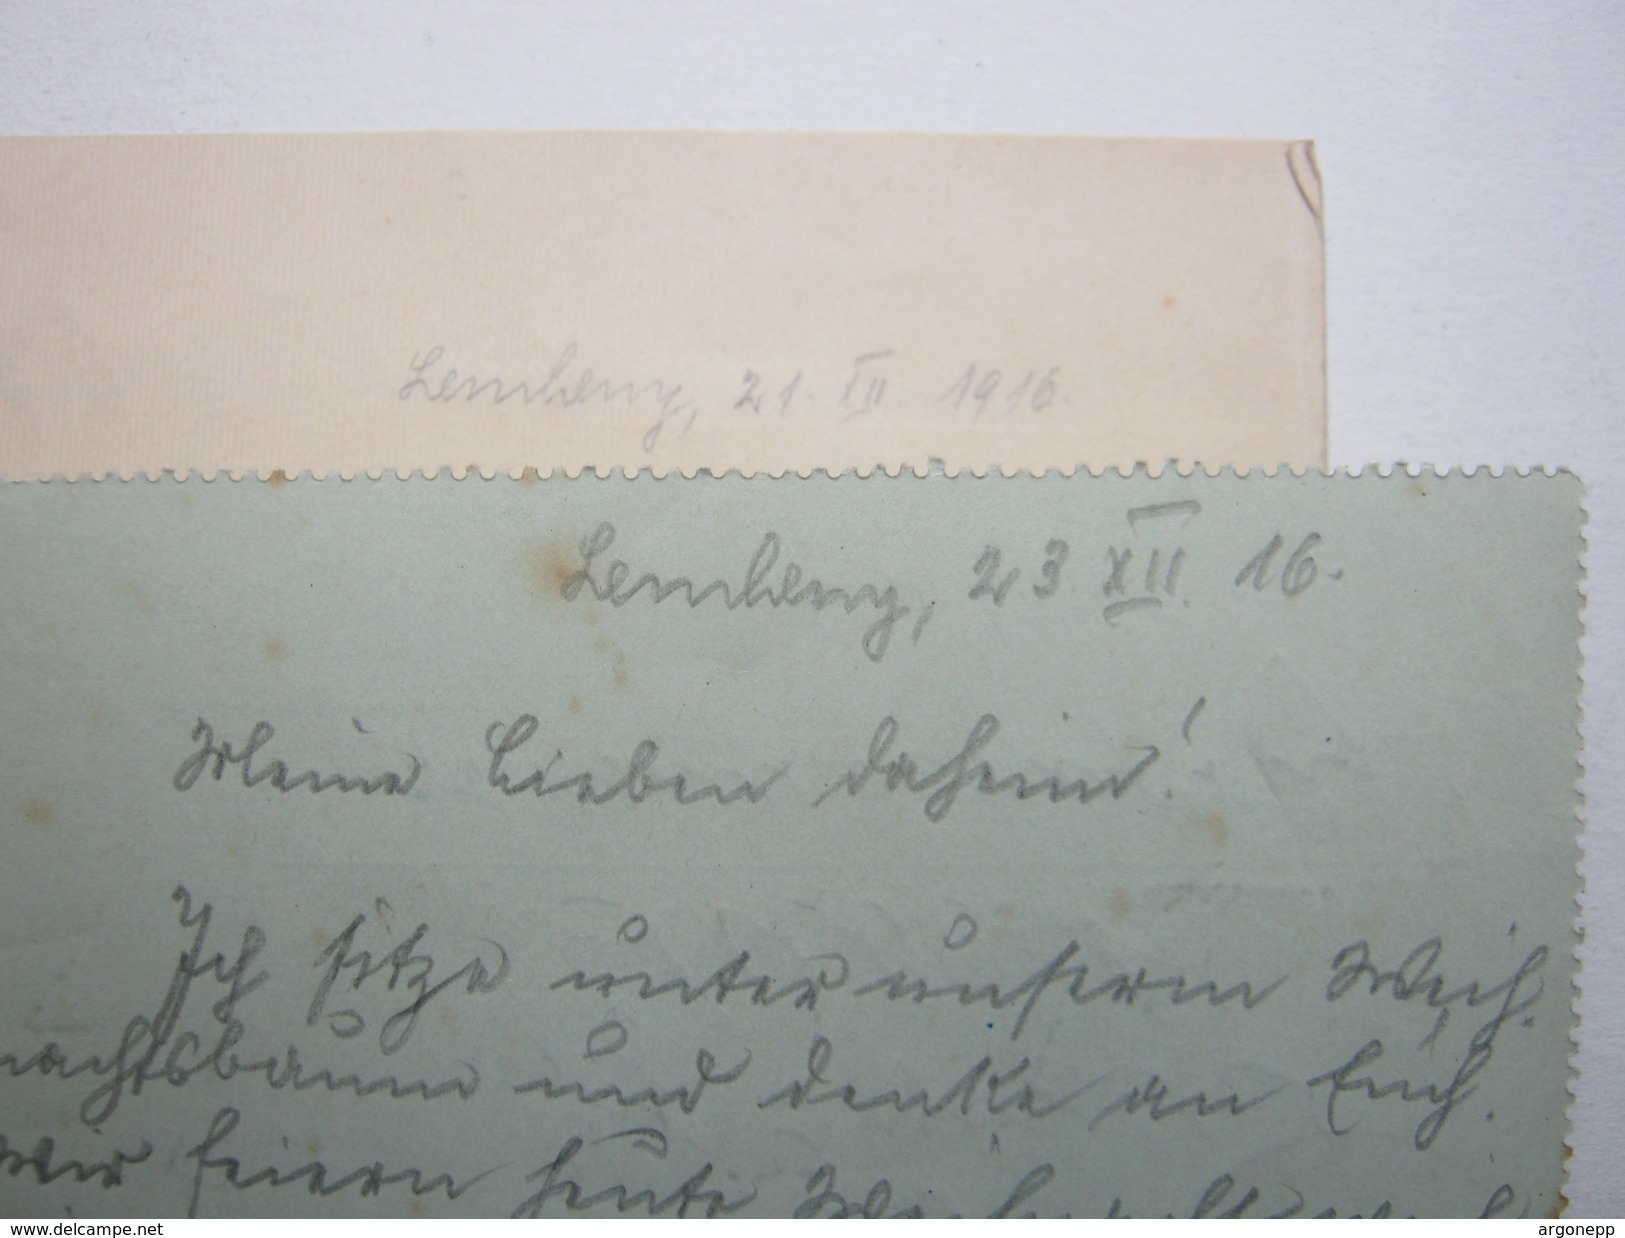 Lemberg, 21. XII 1916.
Lemberg, 23 XII. 16.
Meine Lieben daheim!
Ich sitze unter unserm Weih-
nachtsbaum und denke an Euch.
Wir feiern heute
www.delcampe.net
argonepp